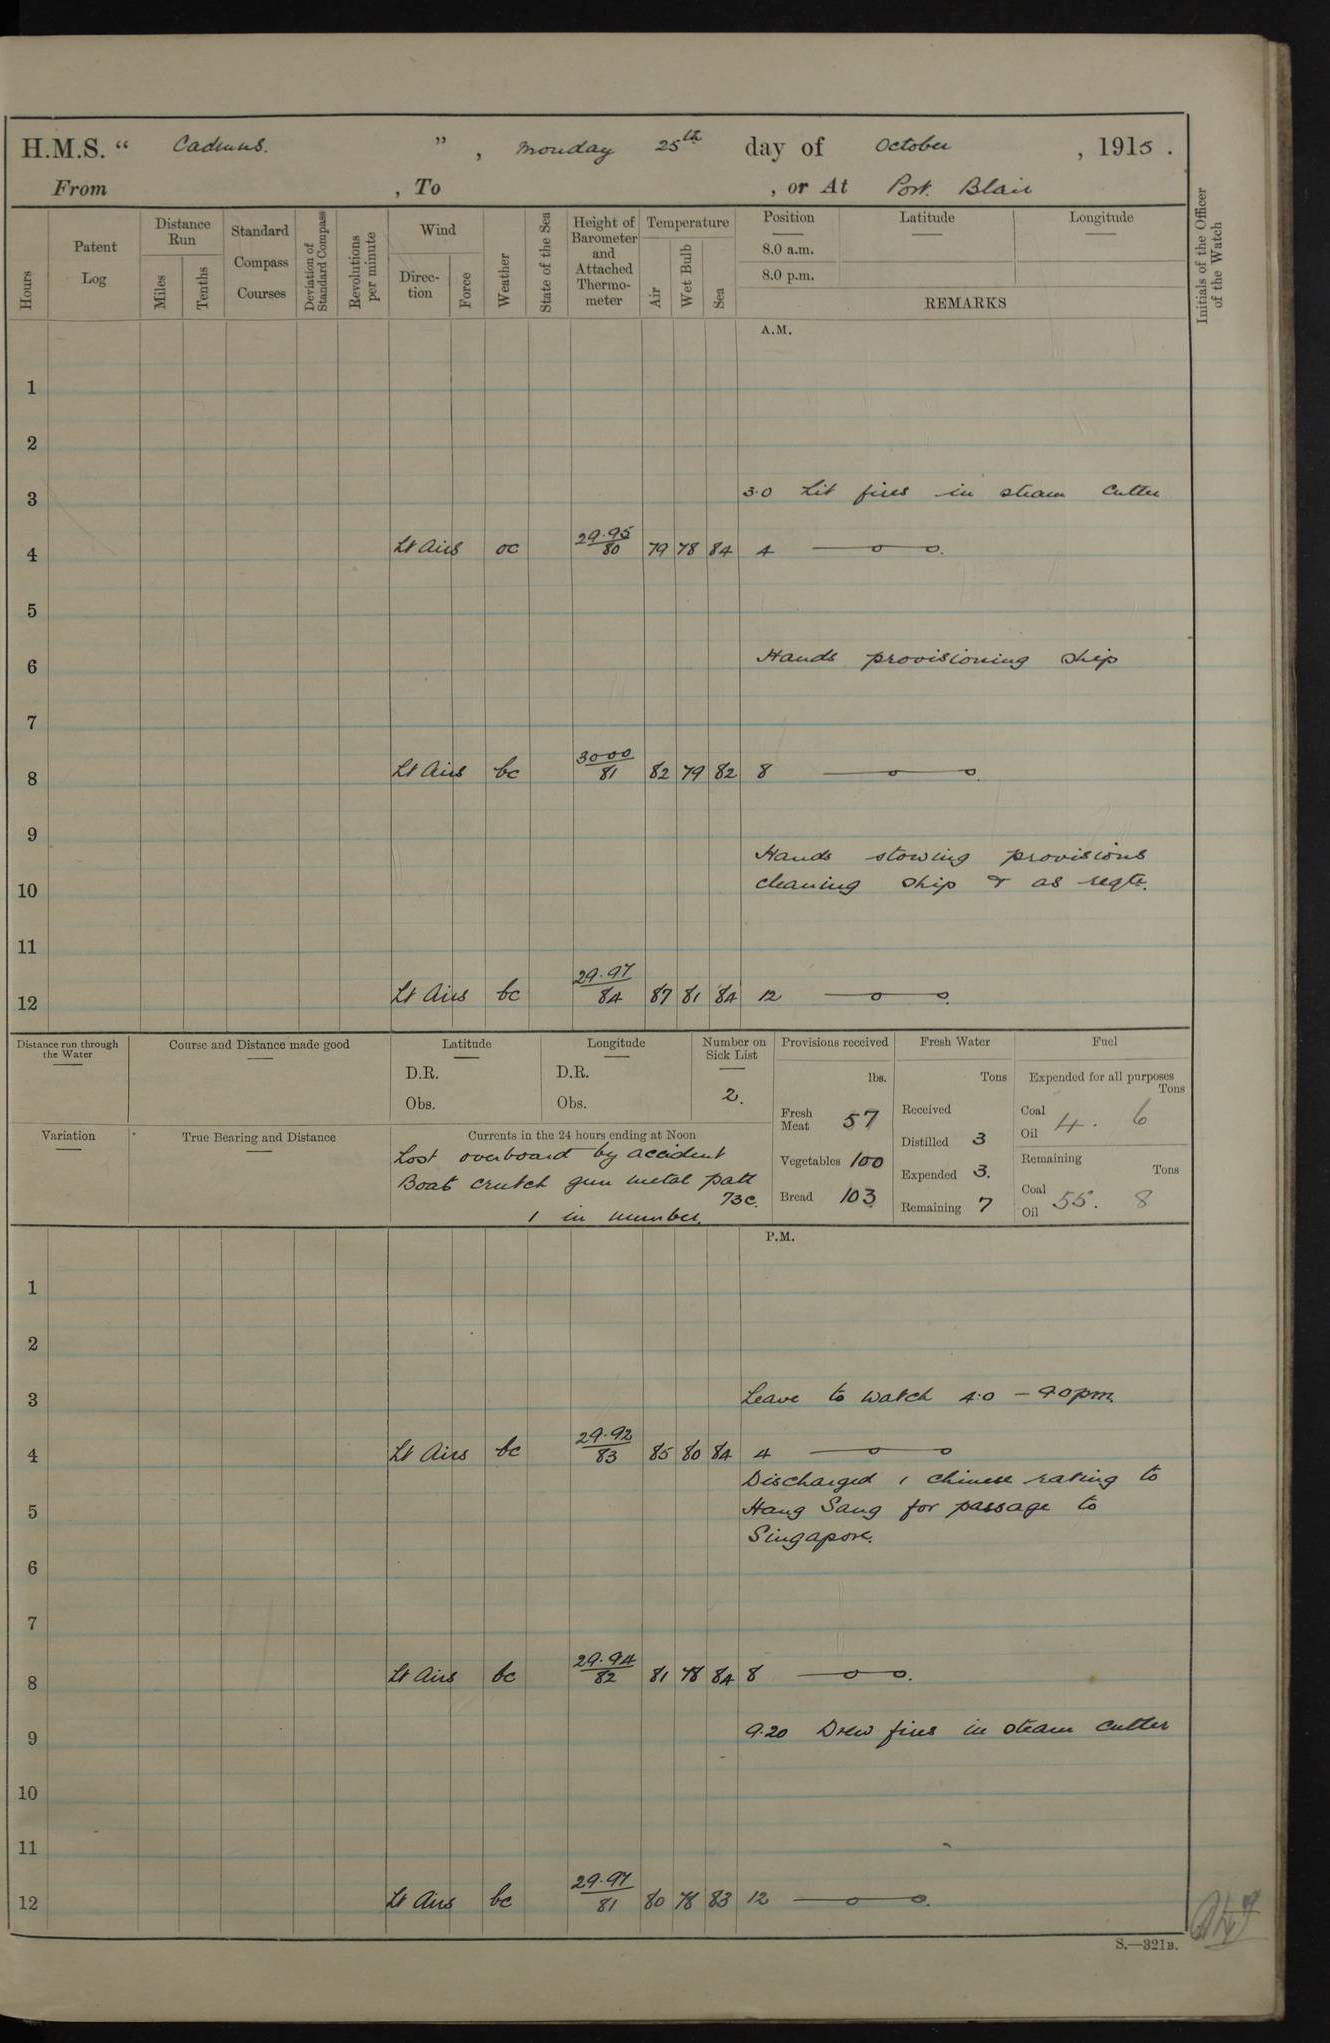 H.M.S. “ Cadmus. ” , Monday 25th day of October , 1915 .
From , To , or At Port Blair
Hours
Patent Log
Distance Run
Miles
Tenths
Standard Compass Courses
Deviation of Standard Compass
Revolutions per minute
Wind
Direc-tion
Force
Weather
State of the Sea
Height of Barometer and Attached Thermo-meter
Temperature
Air
Wet Bulb
Sea
Position Latitude Longitude
8.0 a.m.
8.0 p.m.
REMARKS
Initials of the Officer of the Watch
A.M.
1
2
3 3.0 Lit fires in steam cutter
4 Lt Airs oc 29.95/80 79 78 84 4
5
6 Hands provisioning ship
7
8 Lt Airs bc 30.00/81 82 79 82 8
9
Hands stowing provisions
10 cleaning ship & as reqte.
11
12 Lt Airs bc 29.97/84 87 81 84 12
Distance run through the Water
Course and Distance made good
Latitude
D.R.
Obs.
Longitude
D.R.
Obs.
Number on Sick List
2.
Variation
True Bearing and Distance
Currents in the 24 hours ending at Noon
Lost overboard by accident
Boat crutch gun metal patt
73c.
1 in number.
Provisions received
lbs.
Fresh Meat 57
Vegetables 100
Bread 103
Fresh Water
Tons
Received
Distilled 3
Expended 3.
Remaining 7
Fuel
Expended for all purposes
Tons
Coal
Oil 4. 6
Remaining
Tons
Coal
Oil 55. 8
P.M.
1
2
3 Leave to watch 4.0 – 9.0pm.
4 Lt Airs bc 29.92/83 85 80 84 4
Discharged 1 Chinese rating to
5 Hang Sang for passage to
Singapore.
6
7
8 Lt Airs bc 29.94/82 81 78 84 8
9 9.20 Drew fires in steam cutter
10
11
12 Lt Airs bc 29.97/81 80 78 83 12
S.—321B.